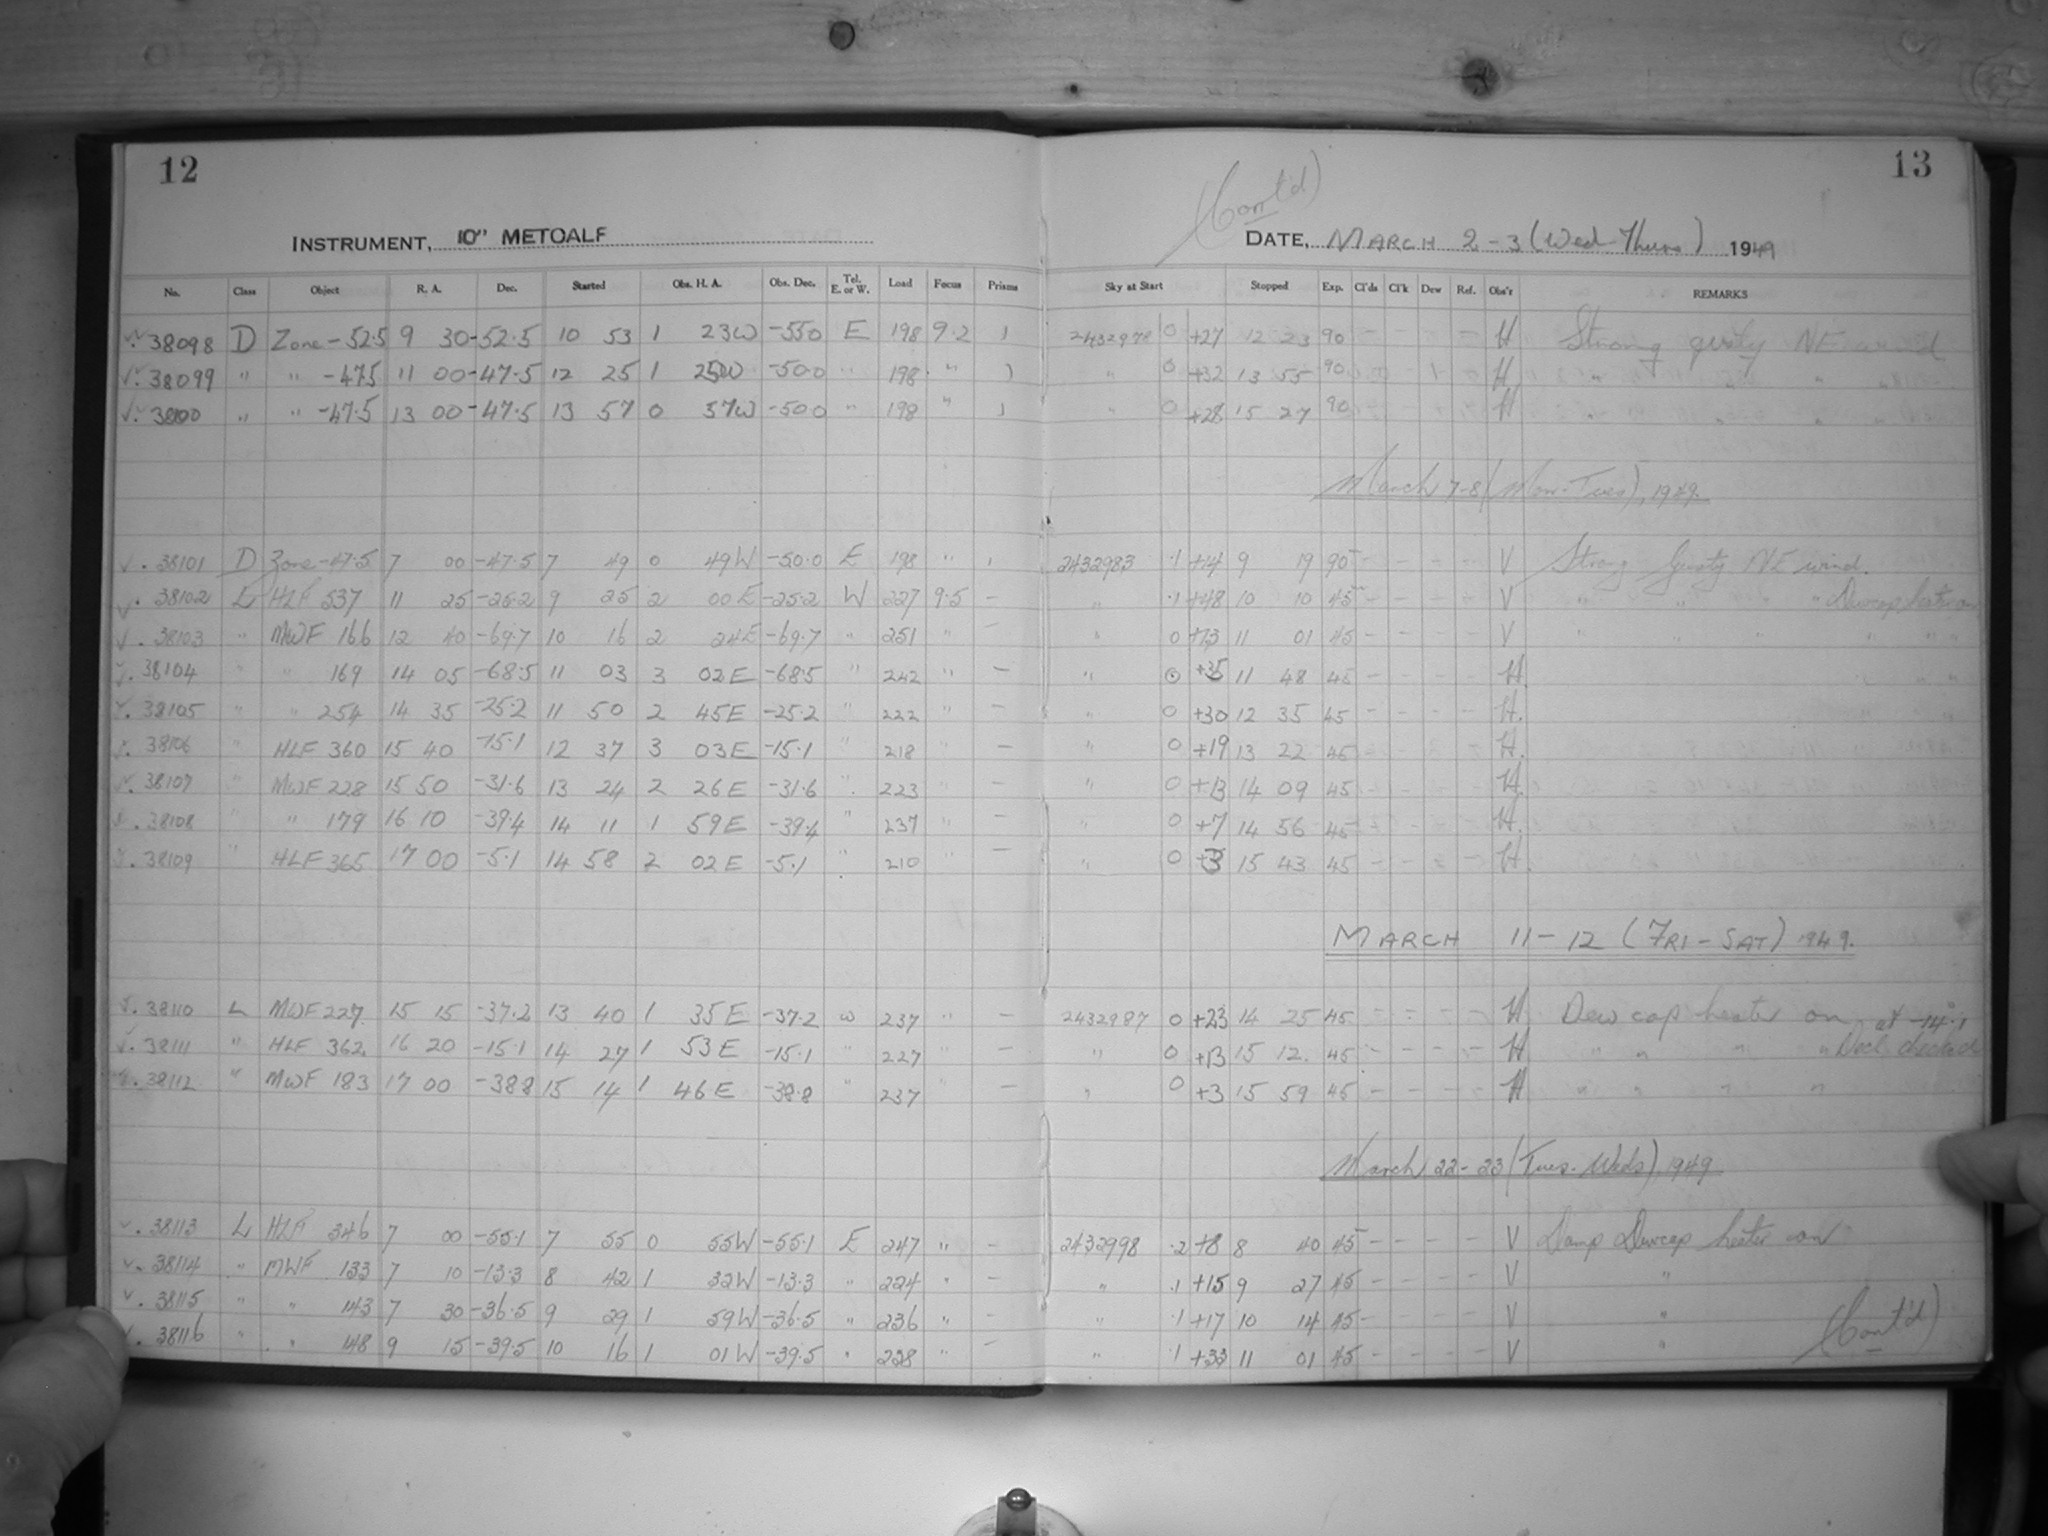 12
INSTRUMENT, 10" METCALF
No. Class Object R. A. Dec. Started Obs. H. A. Obs. Dec. Tel. E. or W. Load Focus Prisms
38098 D Zone -52.5 9 30 -52.5 10 53 1 23W -55.0 E 198 9.2 1
38099 " " -47.5 11 00 -47.5 12 25 1 25W -50.0 " 198 " )
38100 " " -47.5 13 00 -47.5 13 57 0 57W -50.0 " 198 " 1
38101 D Zone -47.5 7 00 -47.5 7 49 0 49W -50.0 E 198 "
38102 L HLF 537 11 25 -25.2 9 25 2 00E -25.2 W 227 9.5 -
38103 " MWF 166 12 40 -69.7 10 16 2 24E -69.7 " 251 " -
38104 " " 169 14 05 -68.5 11 03 3 02E -68.5 " 242 " -
38105 " " 254 14 35 -25.2 11 50 2 45E -25.2 " 222 " -
38106 " HLF 360 15 40 -15.1 12 37 3 03E -15.1 " 218 " -
38107 " MWF 228 15 50 -31.6 13 24 2 26E -31.6 " 223 " -
38108 " " 179 16 10 -39.4 14 11 1 59E -39.4 " 237 " -
38109 " HLF 365 17 00 -5.1 14 58 2 02E -5.1 " 210 " -
38110 L MWF 227 15 15 -37.2 13 40 1 35E -37.2 W 237 " -
38111 " HLF 362 16 20 -15.1 14 27 1 53E -15.1 " 227 " -
38112 " MWF 183 17 00 -38.8 15 14 1 46E -38.8 " 237 -
38113 L HLF 346 7 00 -55.1 7 55 0 55W -55.1 E 247 " -
38114 " MWF 133 7 10 -13.3 8 42 1 32W -13.3 " 224 " -
38115 " " 143 7 30 -36.5 9 29 1 59W -36.5 " 236 " -
38116 " " 148 9 15 -39.5 10 16 1 01W -39.5 " 238 " -
13
(Cont'd)
DATE, MARCH 2-3 (Wed-Thurs) 1949
Sky at Start Stopped Exp. Cl'ds Cl'k Dew Ref. Obs'r REMARKS
2432978 0 +27 12 23 90 - - - - H Strong gusty NE wind
" 0 +32 13 55 90 H " " " "
" 0 +28 15 27 90 H " " " "
March 7-8 (Mon-Tues), 1949.
2432983 .1 +14 9 19 90 - - - - V Strong Gusty NE wind.
" .1 +48 10 10 45 - - - - V " " " " Dewcap heater on
" 0 +13 11 01 45 - - - - V " " " " " "
" 0 +35 11 48 45 - - - - H
" 0 +30 12 35 45 - - - - H.
" 0 +19 13 22 45 H.
" 0 +13 14 09 45 - - - - H.
" 0 +7 14 56 45 - - - - H.
" 0 +3 15 43 45 - - - - H
MARCH 11-12 (FRI-SAT) 1949.
2432987 0 +23 14 25 45 - - - - H Dew cap heater on at -14.1
" 0 +13 15 12. 45 - - - - H " " " " Decl. checked
" 0 +3 15 59 45 - - - - H " " " "
March 22-23 (Tues-Weds), 1949.
2432998 .2 +8 8 40 45 - - - - V Damp Dewcap heater on
" .1 +15 9 27 45 - - - - V "
" .1 +17 10 14 45 - - - - V "
" .1 +33 11 01 45 - - - - V "
(Cont'd)